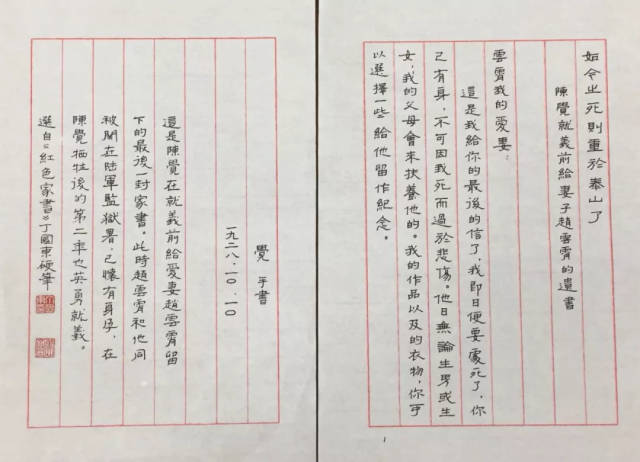 如今之死則重於泰山了
陳覺就義前給妻子趙雲霄的遺書
雲霄我的愛妻:
這是我給你的最後的信了,我即日便要處死了,你
已有身,不可因我死而過於悲傷。他日無論生男或生
女,我的父母會來扶養他的。我的作品以及我的衣物,你可
以選擇一些給他留作紀念。
1
覺 手書
一九二八.一〇.一〇
這是陳覺在就義前給愛妻趙雲霄留
下的最後一封家書。此時趙雲霄和他同
被關在陸軍監獄署,已懷有身孕,在
陳覺犧牲後的第二年也英勇就義。
選自《紅色家書》丁國東硬筆